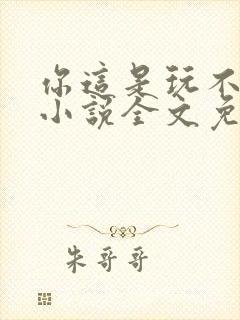 你這是玩不
小說全文免
朱哥哥